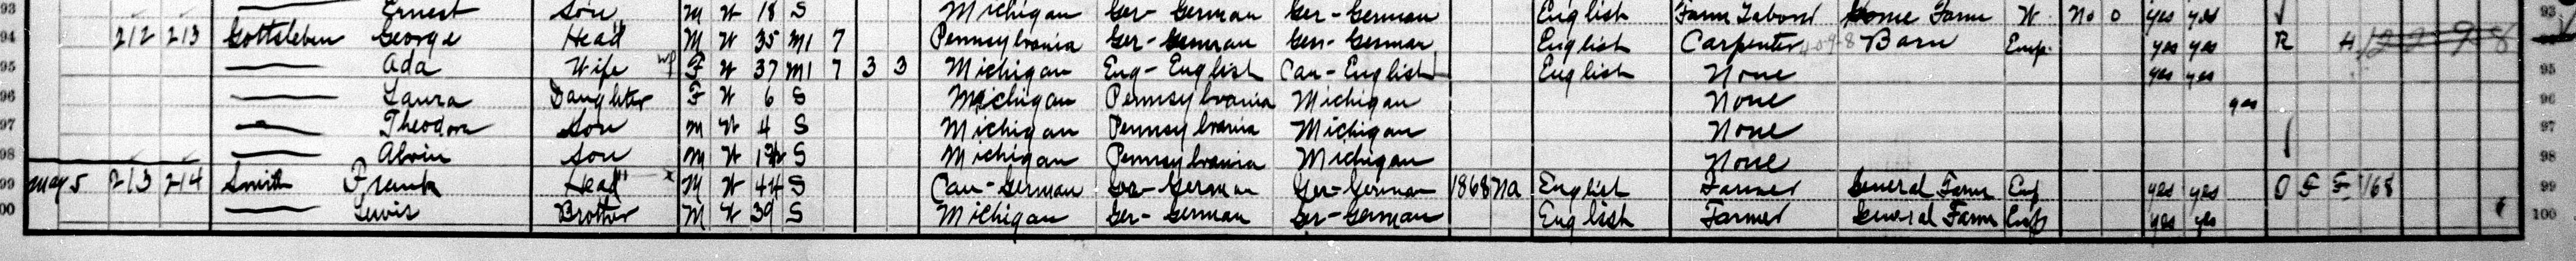 93 Ernest Son M W 18 S Michigan Ger-German Ger-German English Farm Laborer Home Farm W No 0 yes yes 93
94 212 213 Gottsleben George Head M W 35 M1 7 Pennsylvania Ger-German Ger-German English Carpenter Barn Emp. yes yes R H
95 Ada Wife F W 37 M1 7 3 3 Michigan Eng-English Can-English English None yes yes 95
96 Laura Daughter F W 6 S Michigan Pennsylvania Michigan None yes 96
97 Theodore Son M W 4 S Michigan Pennsylvania Michigan None 97
98 Alvin Son M W S Michigan Pennsylvania Michigan None 98
May 5 213 214 Smith Frank Head M W 44 S Can-German Ger-German Ger-German 1868 Na English Farmer General Farm Emp yes yes O F F 168 99
00 Lewis Brother M W 39 S Michigan Ger-German Ger-German English Farmer General Farm Emp yes yes 100